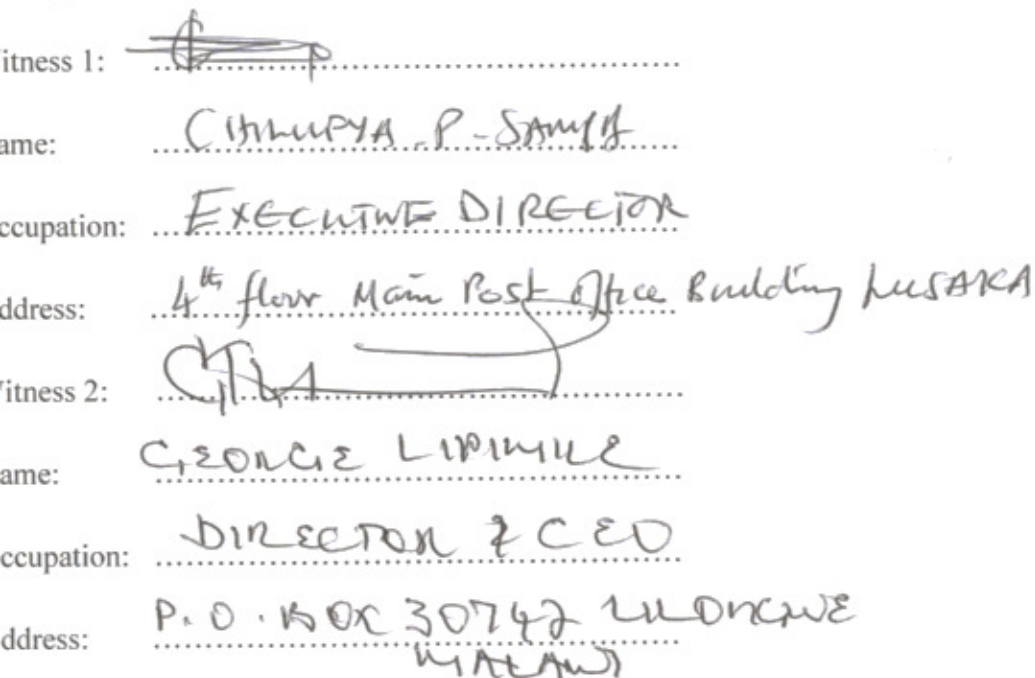 itness 1:
ame: CHILUFYA . P - SAMPA
ccupation: EXECUTIVE DIRECTOR
ddress: 4th floor Main Post Office Building LUSAKA
itness 2:
ame: GEORGE LIPIMILE
ccupation: DIRECTOR & CEO
ddress: P.O. BOX 30742 LILONGWE
MALAWI